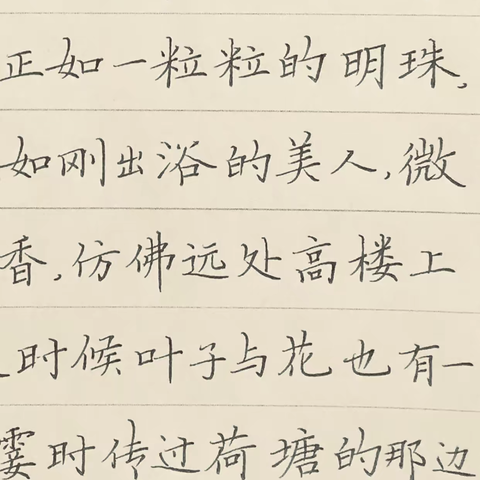 正如一粒粒的明珠,
如刚出浴的美人,微
香,仿佛远处高楼上
时候叶子与花也有一
霎时传过荷塘的那边